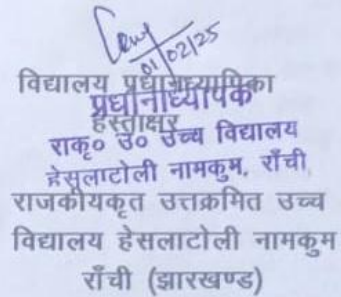 01/02/25
विद्यालय प्रधानाध्यापिका
प्रधानाध्यापक
हस्ताक्षर
राकृ० उ० उच्च विद्यालय
हेसलाटोली नामकुम, राँची
राजकीयकृत उत्तक्रमित उच्च
विद्यालय हेसलाटोली नामकुम
राँची (झारखण्ड)